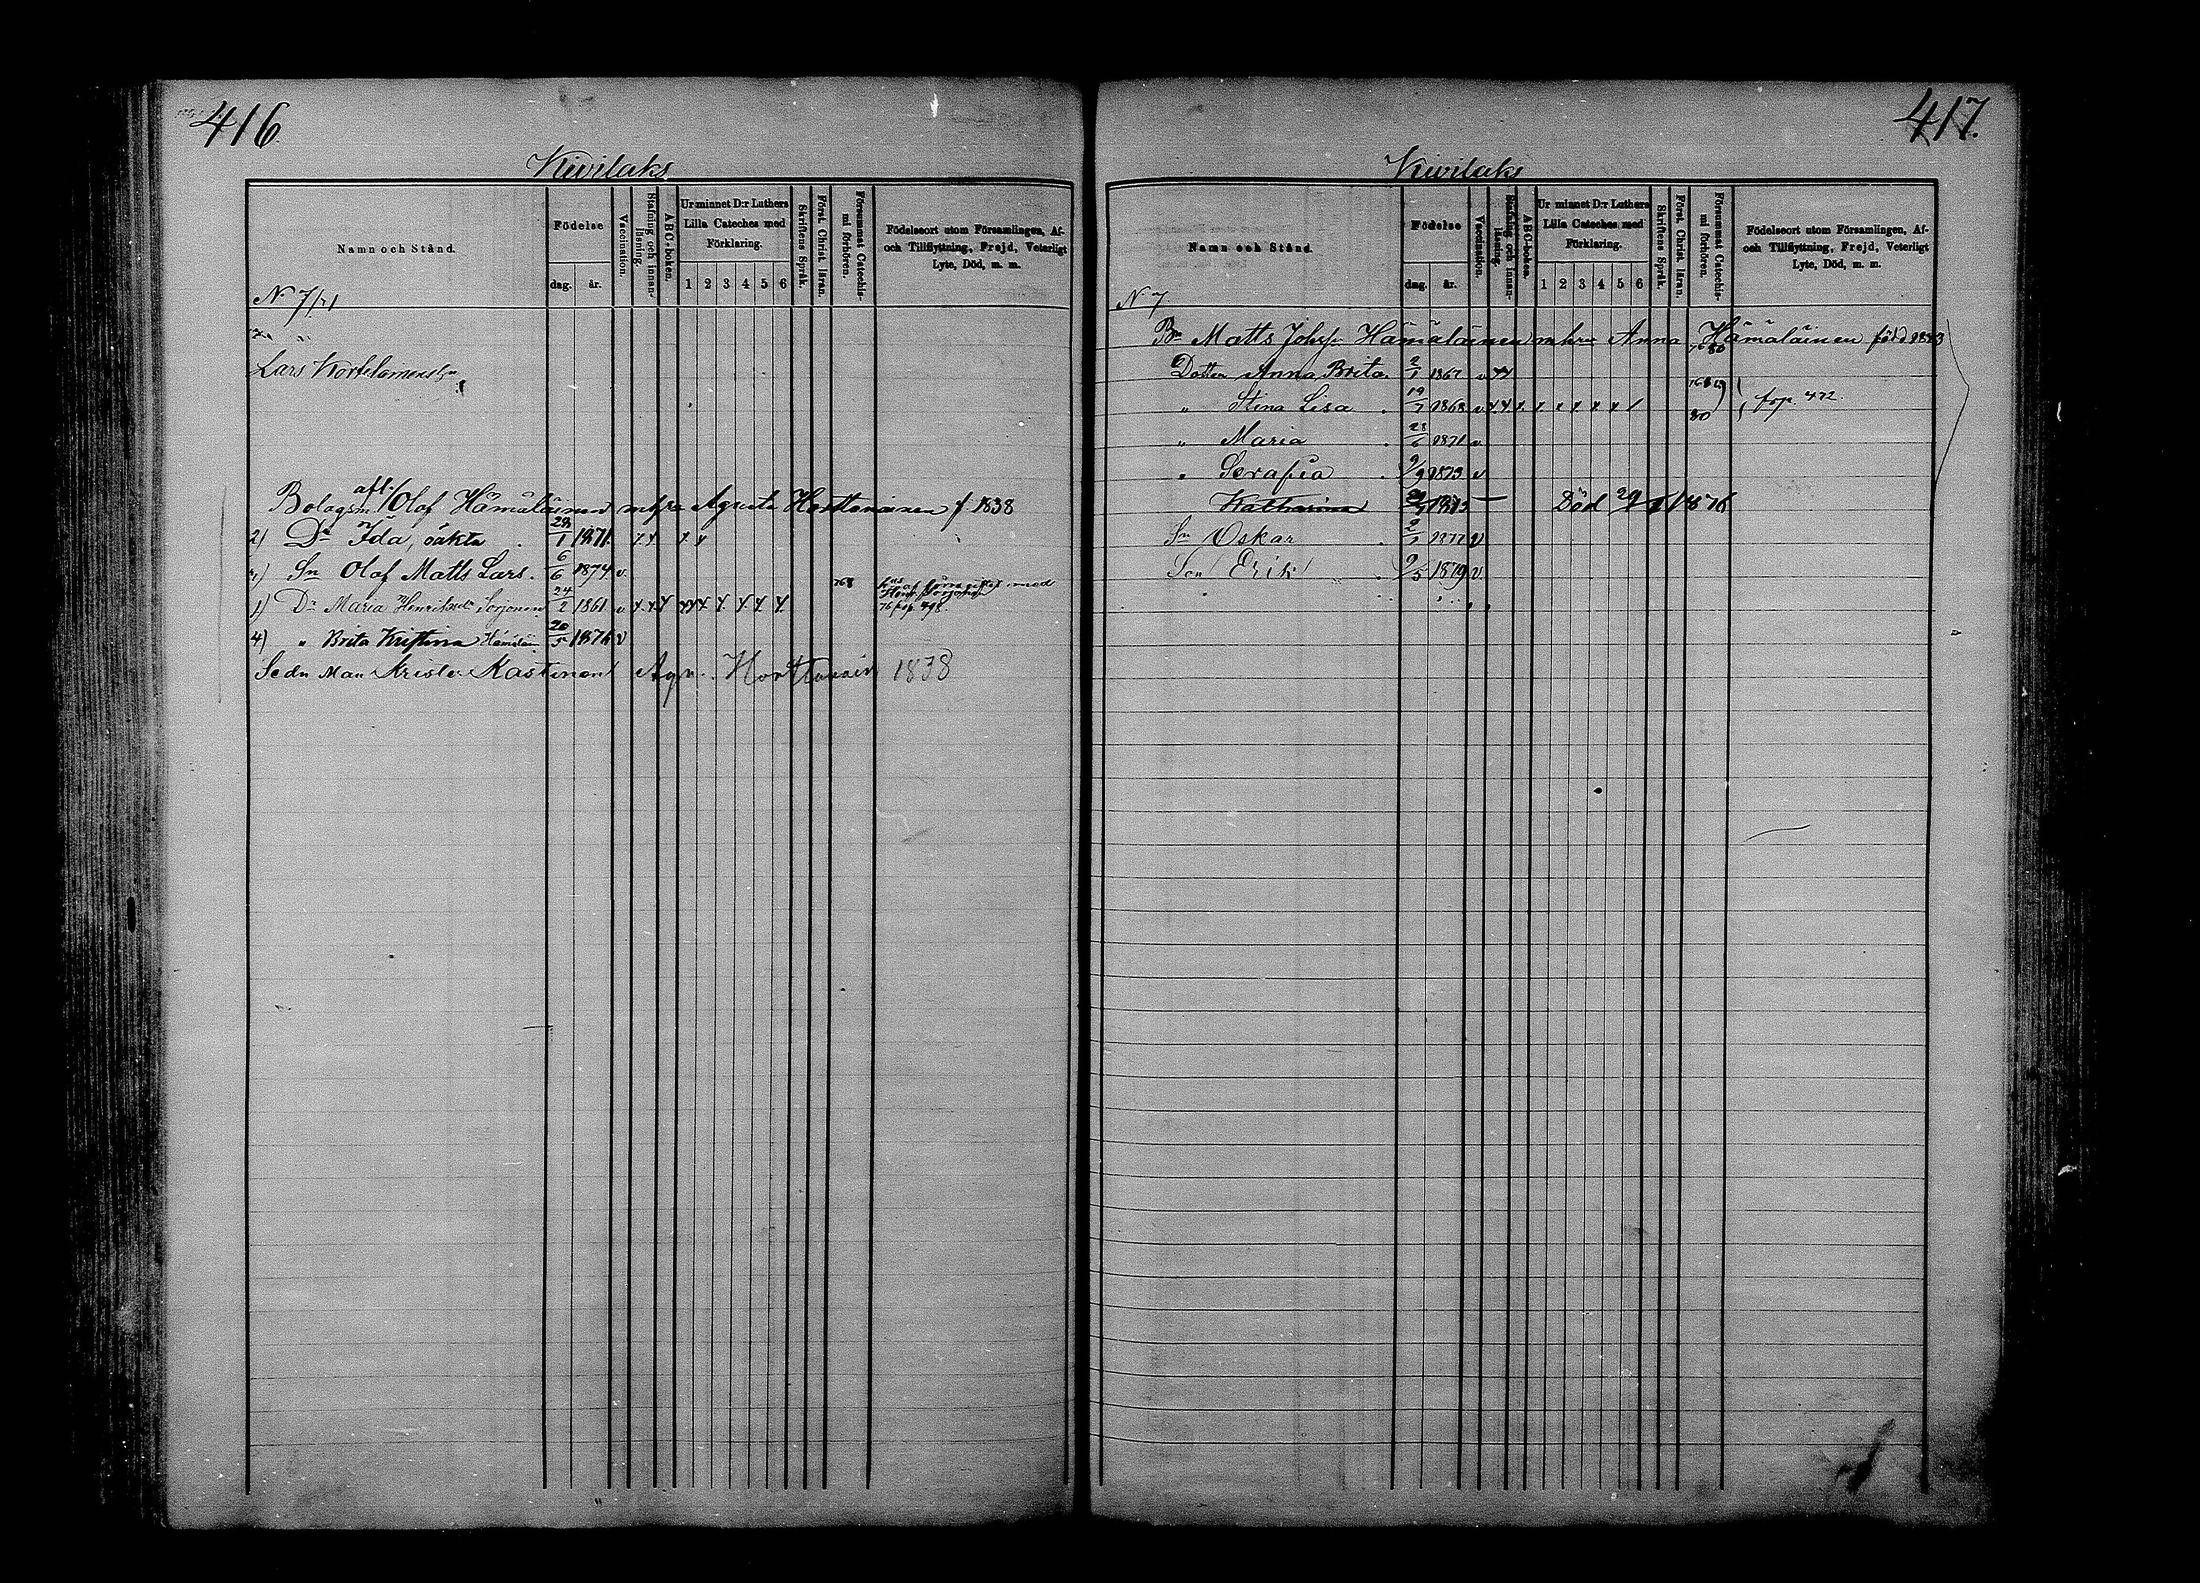 416.
Kivilaks
Namn och Stånd.
Födelse
dag.
år.
Vaccination.
Stafning och innan-läsning.
ABC-boken.
Ur minnet D:r Luthers Lilla Cateches med Förklaring.
1 2 3 4 5 6
Skriftens Språk.
Först. Christ. läran.
Försummat Catechis-mi förhören.
Födelseort utom Församlingen, Af- och Tillflyttning, Frejd, Veterligt Lyte, Död, m. m.
N 7/71
Lars
afl.
Bolagsm Olof Hämäläinen mhru Agneta Horttanainen f 1838
2) Dr Ida, oäkta 28/1 1871
Sn Olof Matts Lars. 6/6 1874 v.
1) Dr Maria Henriksdr Sorjonen 24/2 1861 v
76 pag. 498
4) " Brita Kristina Hämäläin 20/5 1876 v
Sedn Man Krister Kastinen Agn. Horttanain 1838
417.
Kivilaks
Namn och Stånd.
Födelse
dag.
år.
Vaccination.
Stafning och innan-läsning.
ABC-boken.
Ur minnet D:r Luthers Lilla Cateches med Förklaring.
1 2 3 4 5 6
Skriftens Språk.
Först. Christ. läran.
Försummat Catechis-mi förhören.
Födelseort utom Församlingen, Af- och Tillflyttning, Frejd, Veterligt Lyte, Död, m. m.
N 7
Br Matts Johsn Hämäläinen mhru Anna Hämäläinen född 1843
Dotter Anna Brita. 2/1 1867 v
" Stina Lisa 19/7 1868 v 80 pag. 472
" Maria 28/6 1871 v
" Serafia 9/9 1873 v
Katharina 1875 Död 29/1 1876
Sn Oskar 2/1 1877 v
Son Erik 9/5 1879 v